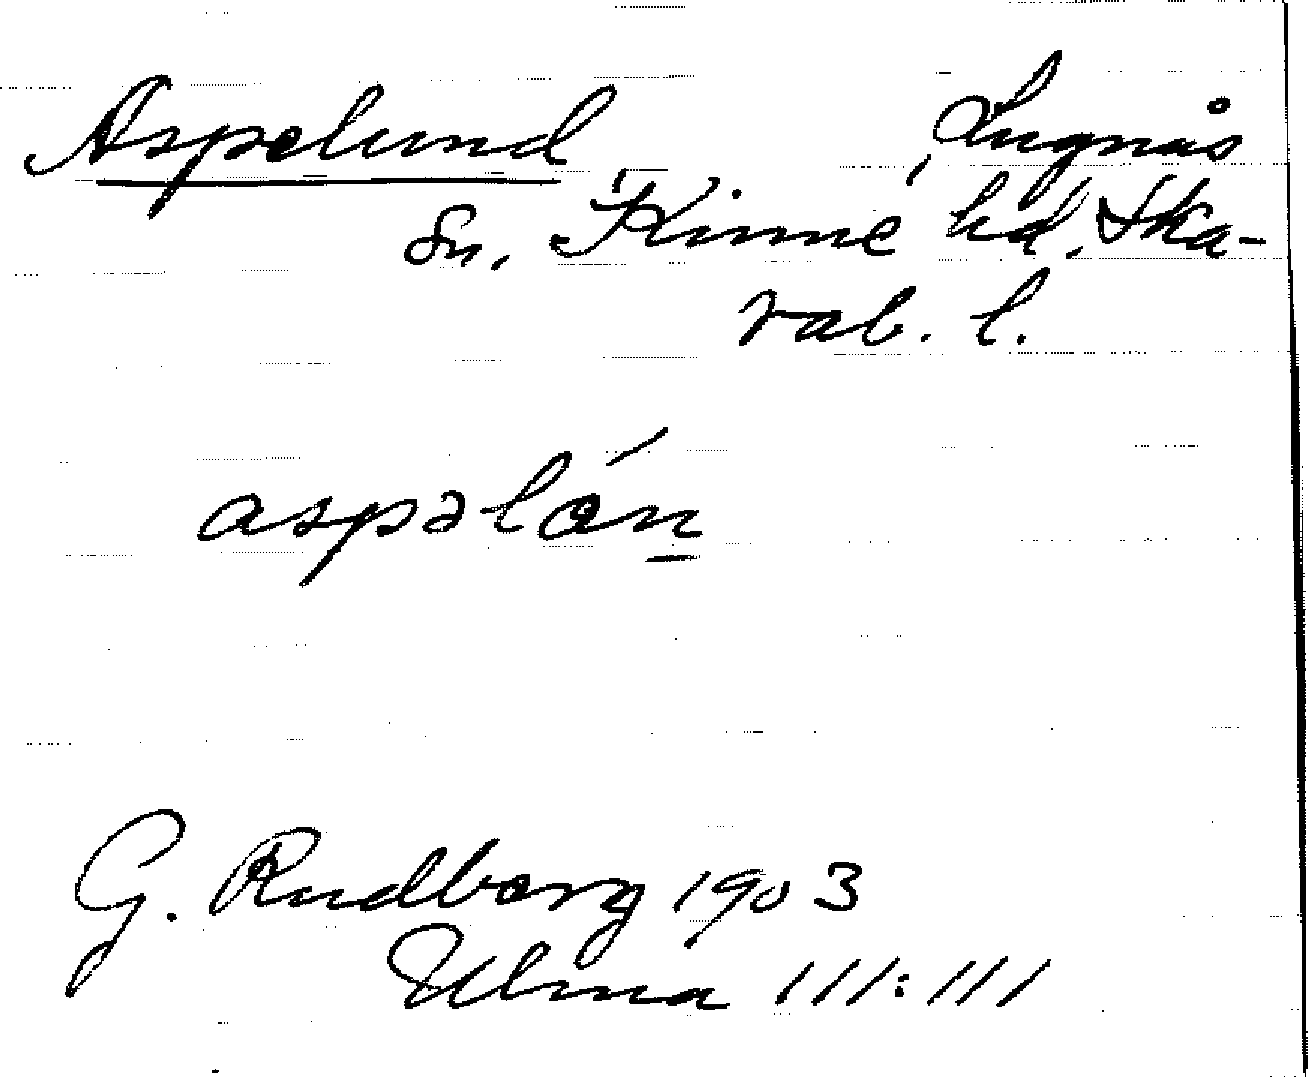 Aspelund Lugnås
sn, Kinne hd, Ska-
rab. l.
aspəlán
G. Rudberg 1903
Ulma 111:111